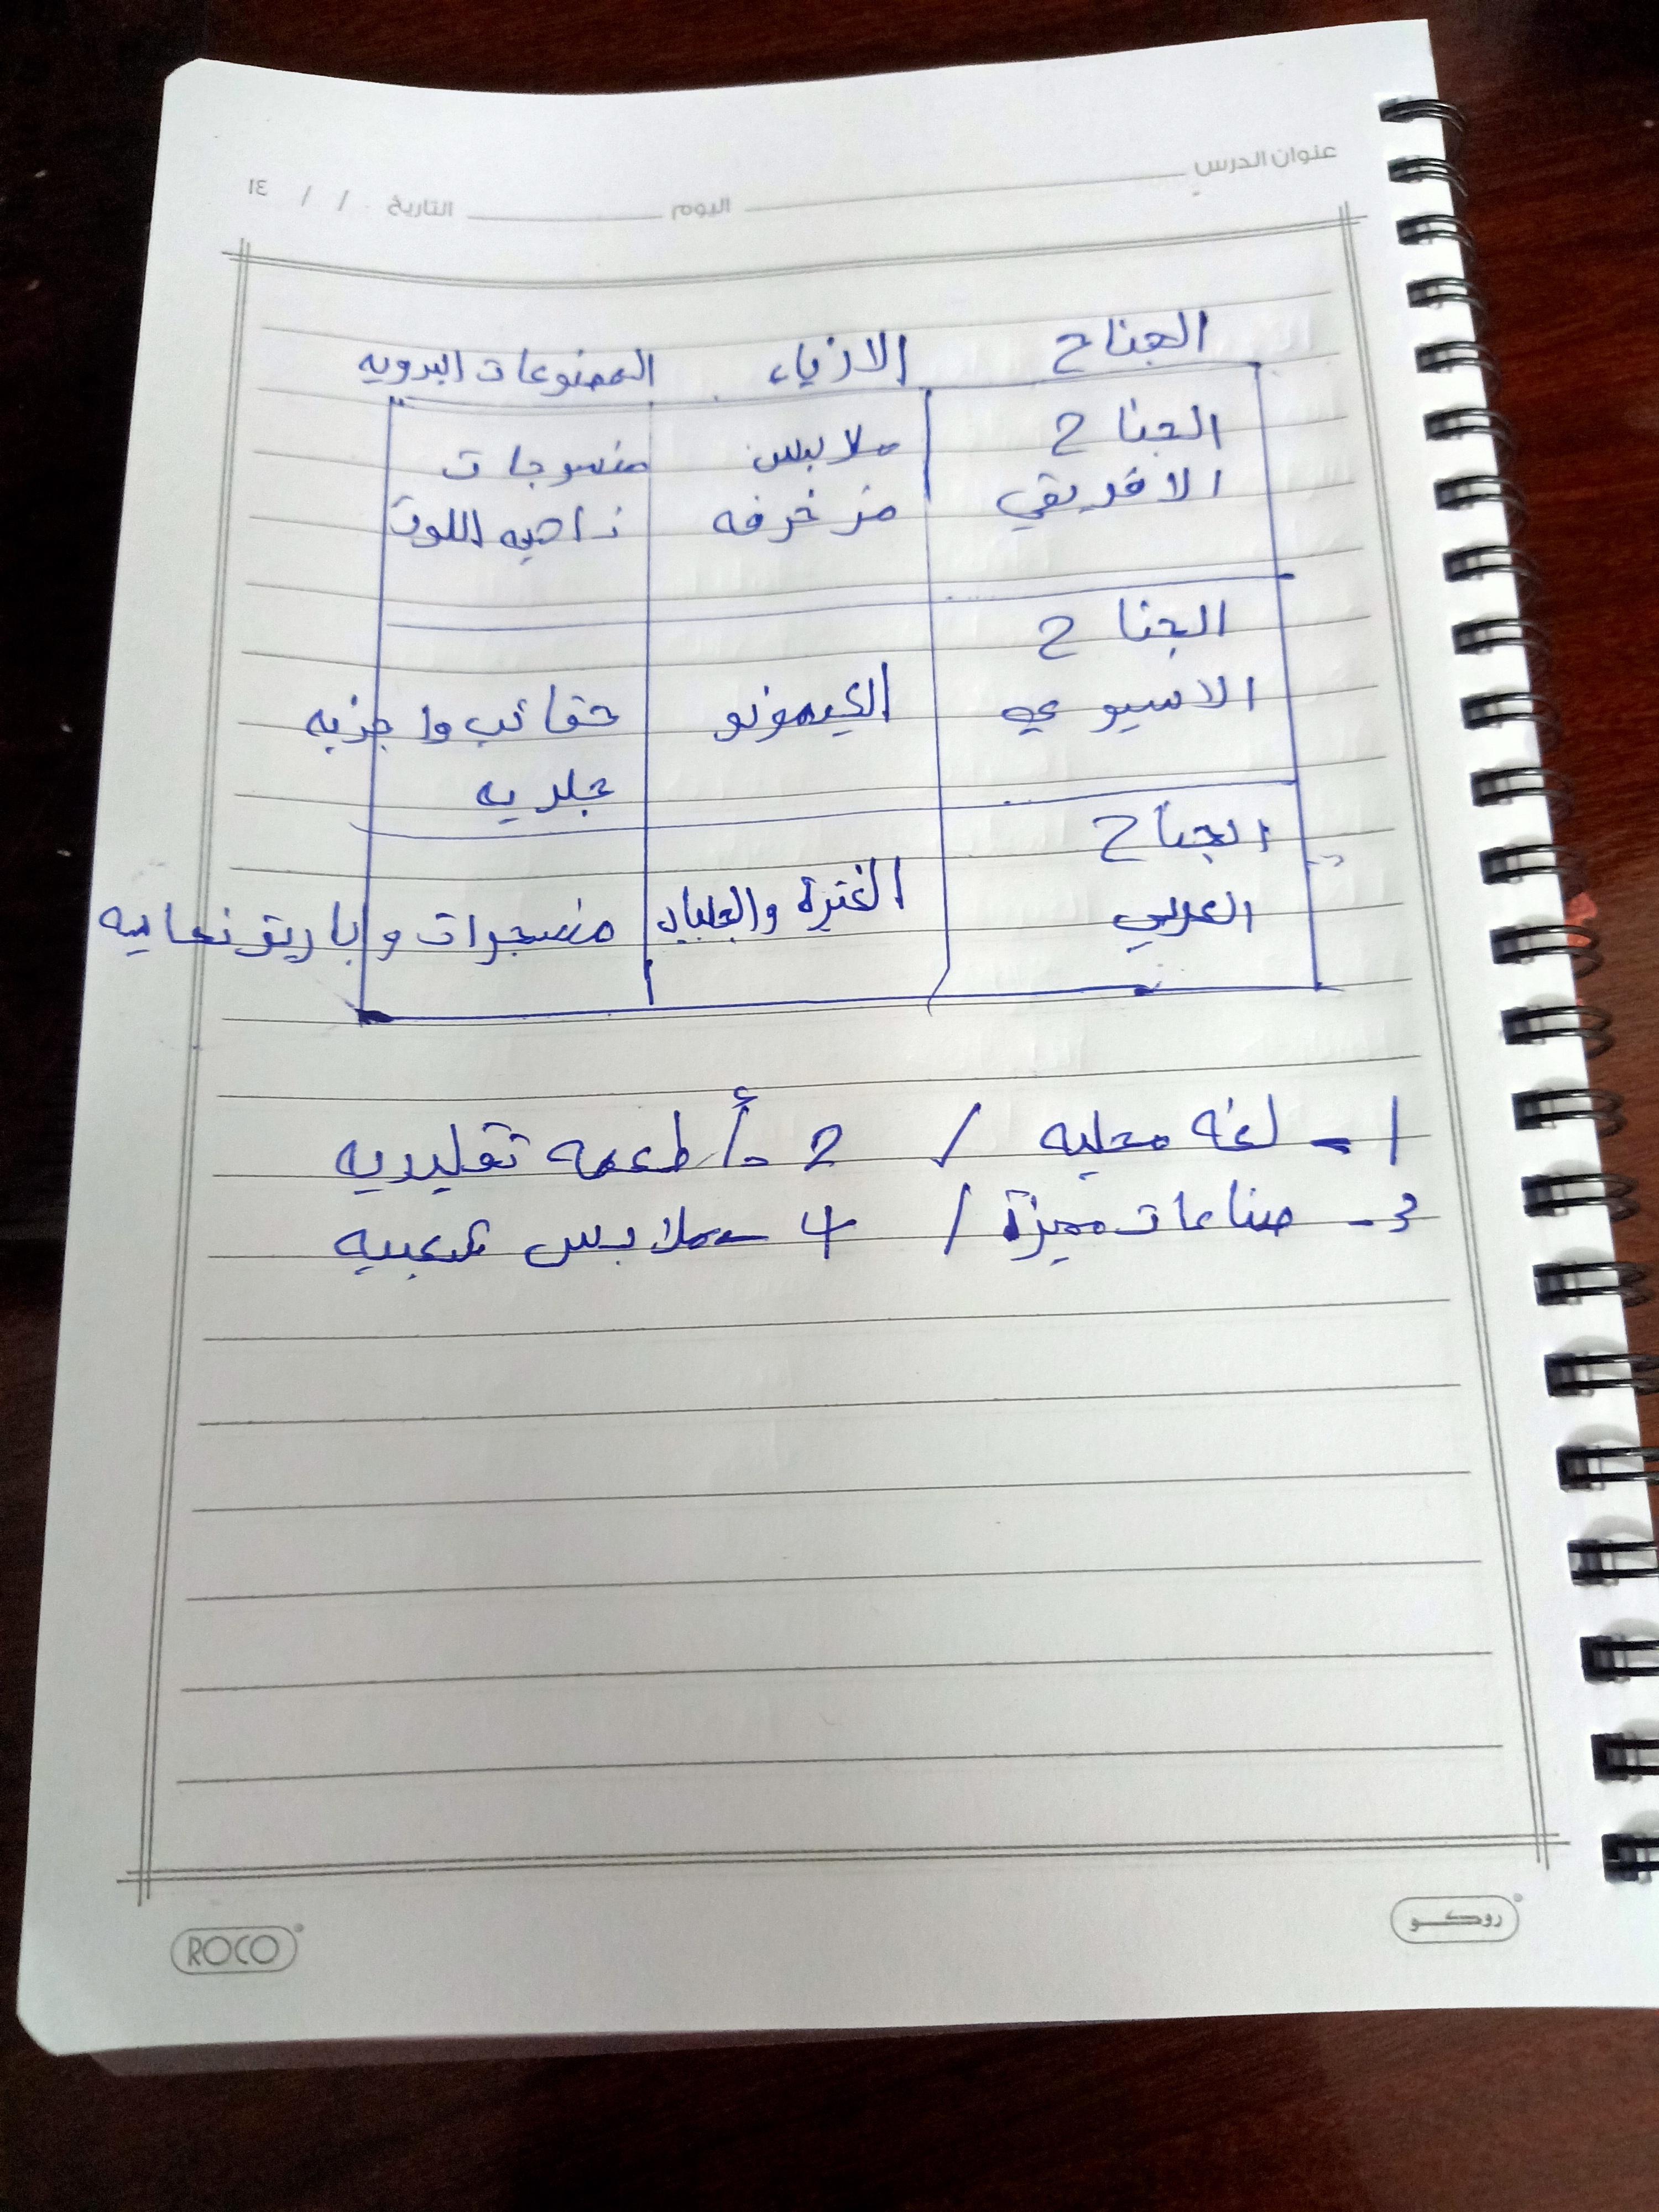 عنوان الدرس اليوم التاريخ / / ١٤
الجناح الازياء المصنوعات اليدويه
الجناح ملابس منسوجات
الافريقي مزخرفه زاهيه اللون
الجناح
الاسيوي الكيمونو حقائب واحزيه
جلديه
الجناح
العربي الغترة والجلباب منسجوات واباريق نحاسيه
1 - لغه محليه / 2 - أطعمه تقليديه
3 - صناعات مميزة / 4 - ملابس شعبيه
ROCO روكو